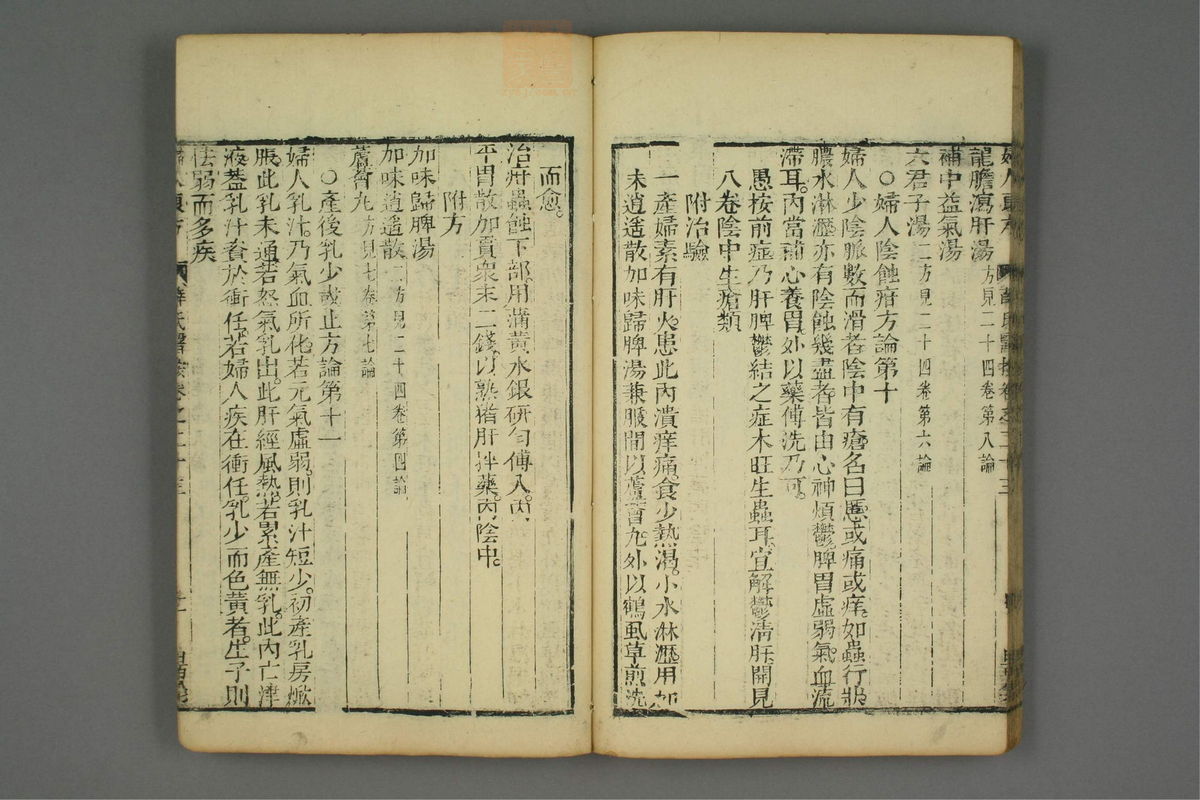 龍膽瀉肝湯方見二十四卷第八論
補中益氣湯
六君子湯二方見二十四卷第六論
○婦人陰蝕瘡方論第十
婦人少陰脈數而滑者陰中有瘡名曰䘌或痛或痒如蟲行狀
膿水淋瀝亦有陰蝕幾盡者皆由心神煩鬱脾胃虛弱氣血流
滯耳內當補心養胃外以藥傅洗乃可
愚按前症乃肝脾鬱結之症木旺生蟲耳宜解鬱清肝開見
八卷陰中生瘡類
附治驗
一產婦素有肝火患此內潰痒痛食少熱渴小水淋瀝用加
未逍遥散加味歸脾湯兼服間以蘆薈九外以鶴虱草煎洗
而愈
治疳蟲蝕下部用蒲黃水銀研勻傅入內
平胃散加貫衆末二錢以熟猪肝拌藥內陰中
附方
加味歸脾湯
加味逍遥散二方見二十四卷第四論
蘆薈九方見七卷第七論
○產後乳少或止方論第十一
婦人乳汁乃氣血所化若元氣虛弱則乳汁短少初產乳房焮
脹此乳未通若怒氣乳出此肝經風熱若累產無乳此內亡津
液葢乳汁資於衝任若婦人疾在衝任乳少而色黃者生子則
怯弱而多疾
薛氏醫按卷之二十三